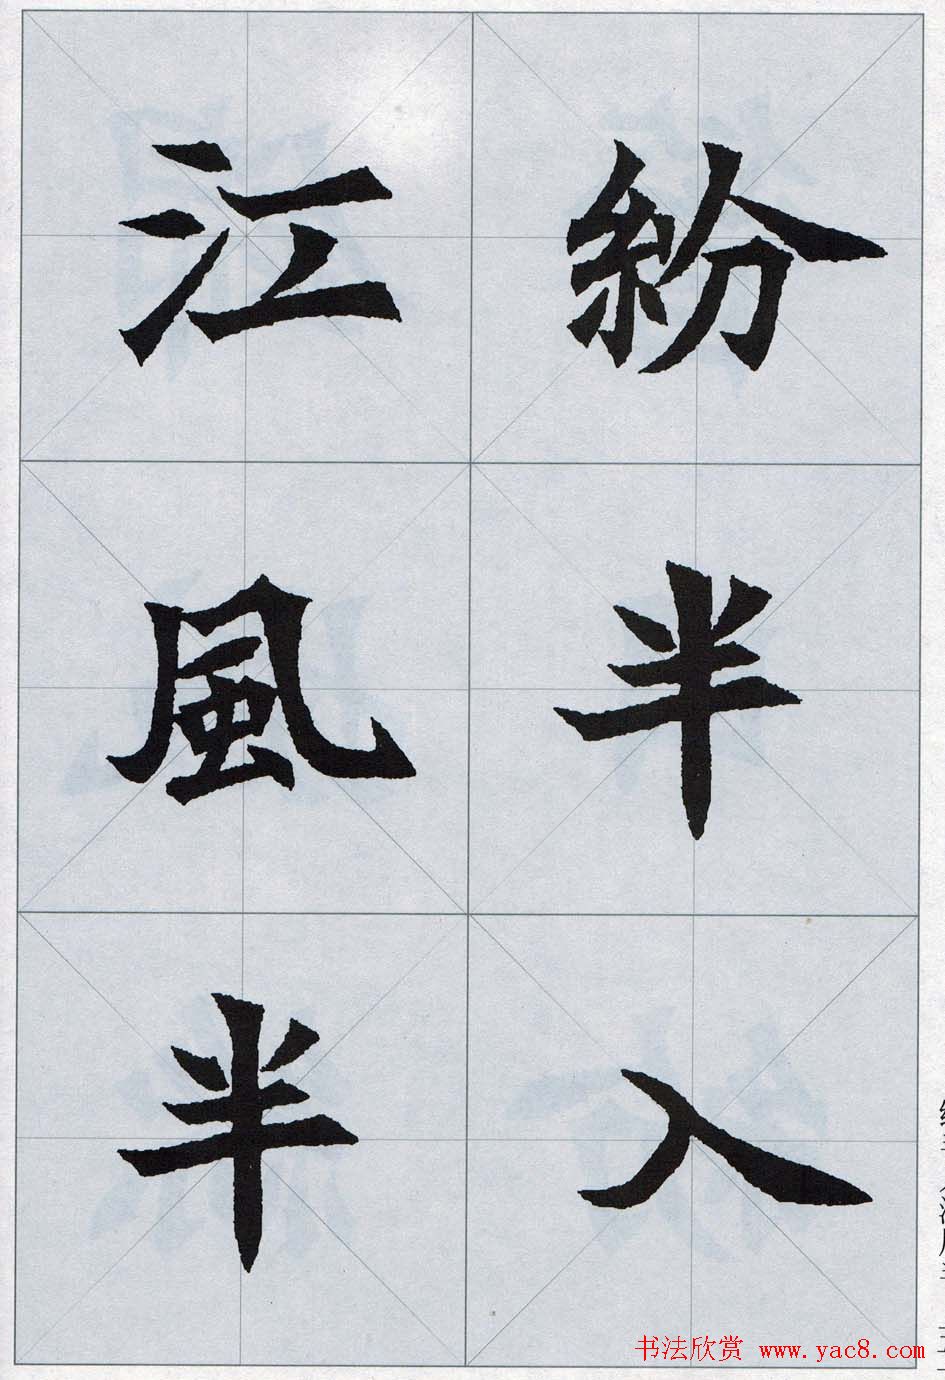 紛半入
江風半
书法欣赏 www.yac8.com